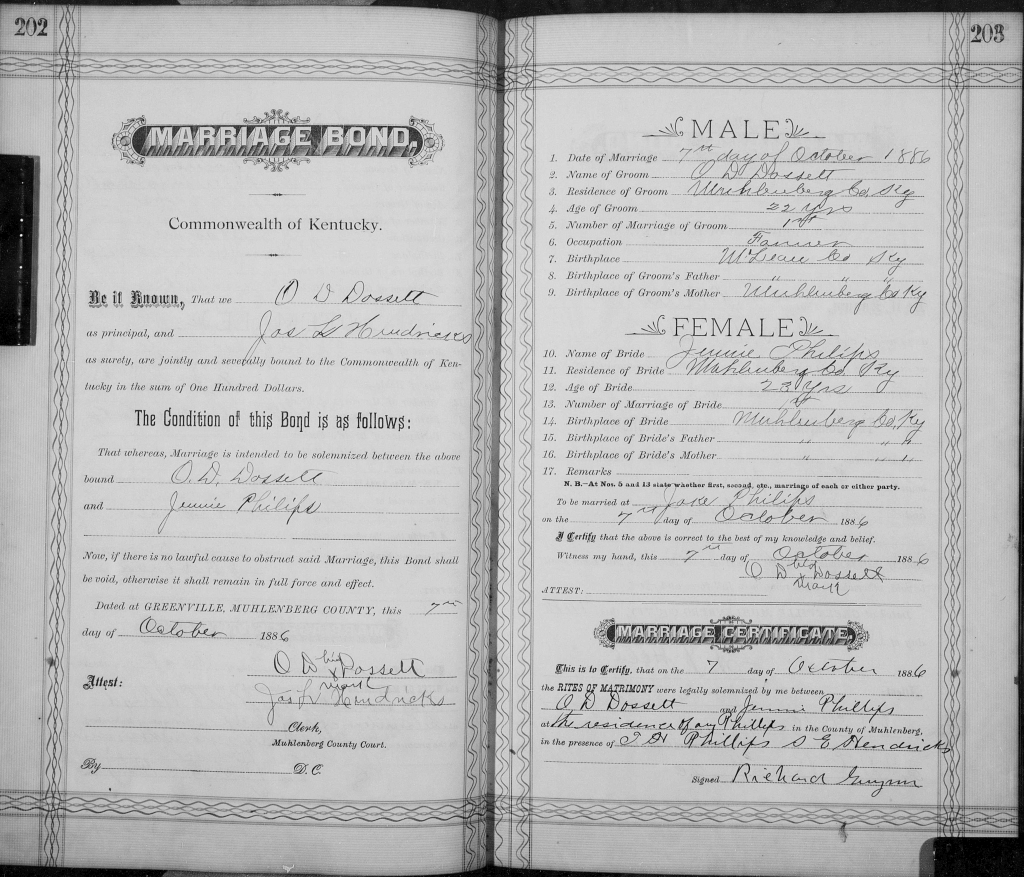 202
MARRIAGE BOND,
Commonwealth of Kentucky.
Be it Known, That we O D Dossett
as principal, and Jas L Hendricks
as surety, are jointly and severally bound to the Commonwealth of Ken-
tucky in the sum of One Hundred Dollars.
The Condition of this Bond is as follows:
That whereas, Marriage is intended to be solemnized between the above
bound O. D. Dossett
and Jennie Philips
Now, if there is no lawful cause to obstruct said Marriage, this Bond shall
be void, otherwise it shall remain in full force and effect.
Dated at GREENVILLE, MUHLENBERG COUNTY, this 7th
day of October 1886
O D his Dossett
mark
Attest: Jas L Hendricks
Clerk,
Muhlenberg County Court.
By D. C.
203
MALE
1. Date of Marriage 7th day of October 1886
2. Name of Groom O D Dossett
3. Residence of Groom Muhlenberg Co, Ky
4. Age of Groom 22 Yrs
5. Number of Marriage of Groom 1st
6. Occupation Farmer
7. Birthplace McLean Co Ky
8. Birthplace of Groom's Father " " "
9. Birthplace of Groom's Mother Muhlenberg Co Ky
FEMALE
10. Name of Bride Jennie Philips
11. Residence of Bride Muhlenberg Co. Ky
12. Age of Bride 23 Yrs
13. Number of Marriage of Bride 1st
14. Birthplace of Bride Muhlenberg Co, Ky
15. Birthplace of Bride's Father " " "
16. Birthplace of Bride's Mother " " "
17. Remarks
N. B.—At Nos. 5 and 13 state whether first, second, etc., marriage of each or either party.
To be married at Jake Philips
on the 7th day of October 1886
I Certify that the above is correct to the best of my knowledge and belief.
Witness my hand, this 7th day of October 1886
O D his Dossett
mark
ATTEST:
MARRIAGE CERTIFICATE,
This is to Certify, that on the 7 day of October 1886
the RITES OF MATRIMONY were legally solemnized by me between
O D Dossett and Jennie Phillips
at the residence of Phillips in the County of Muhlenberg,
in the presence of T H Phillips S E Hendricks
Signed Richard